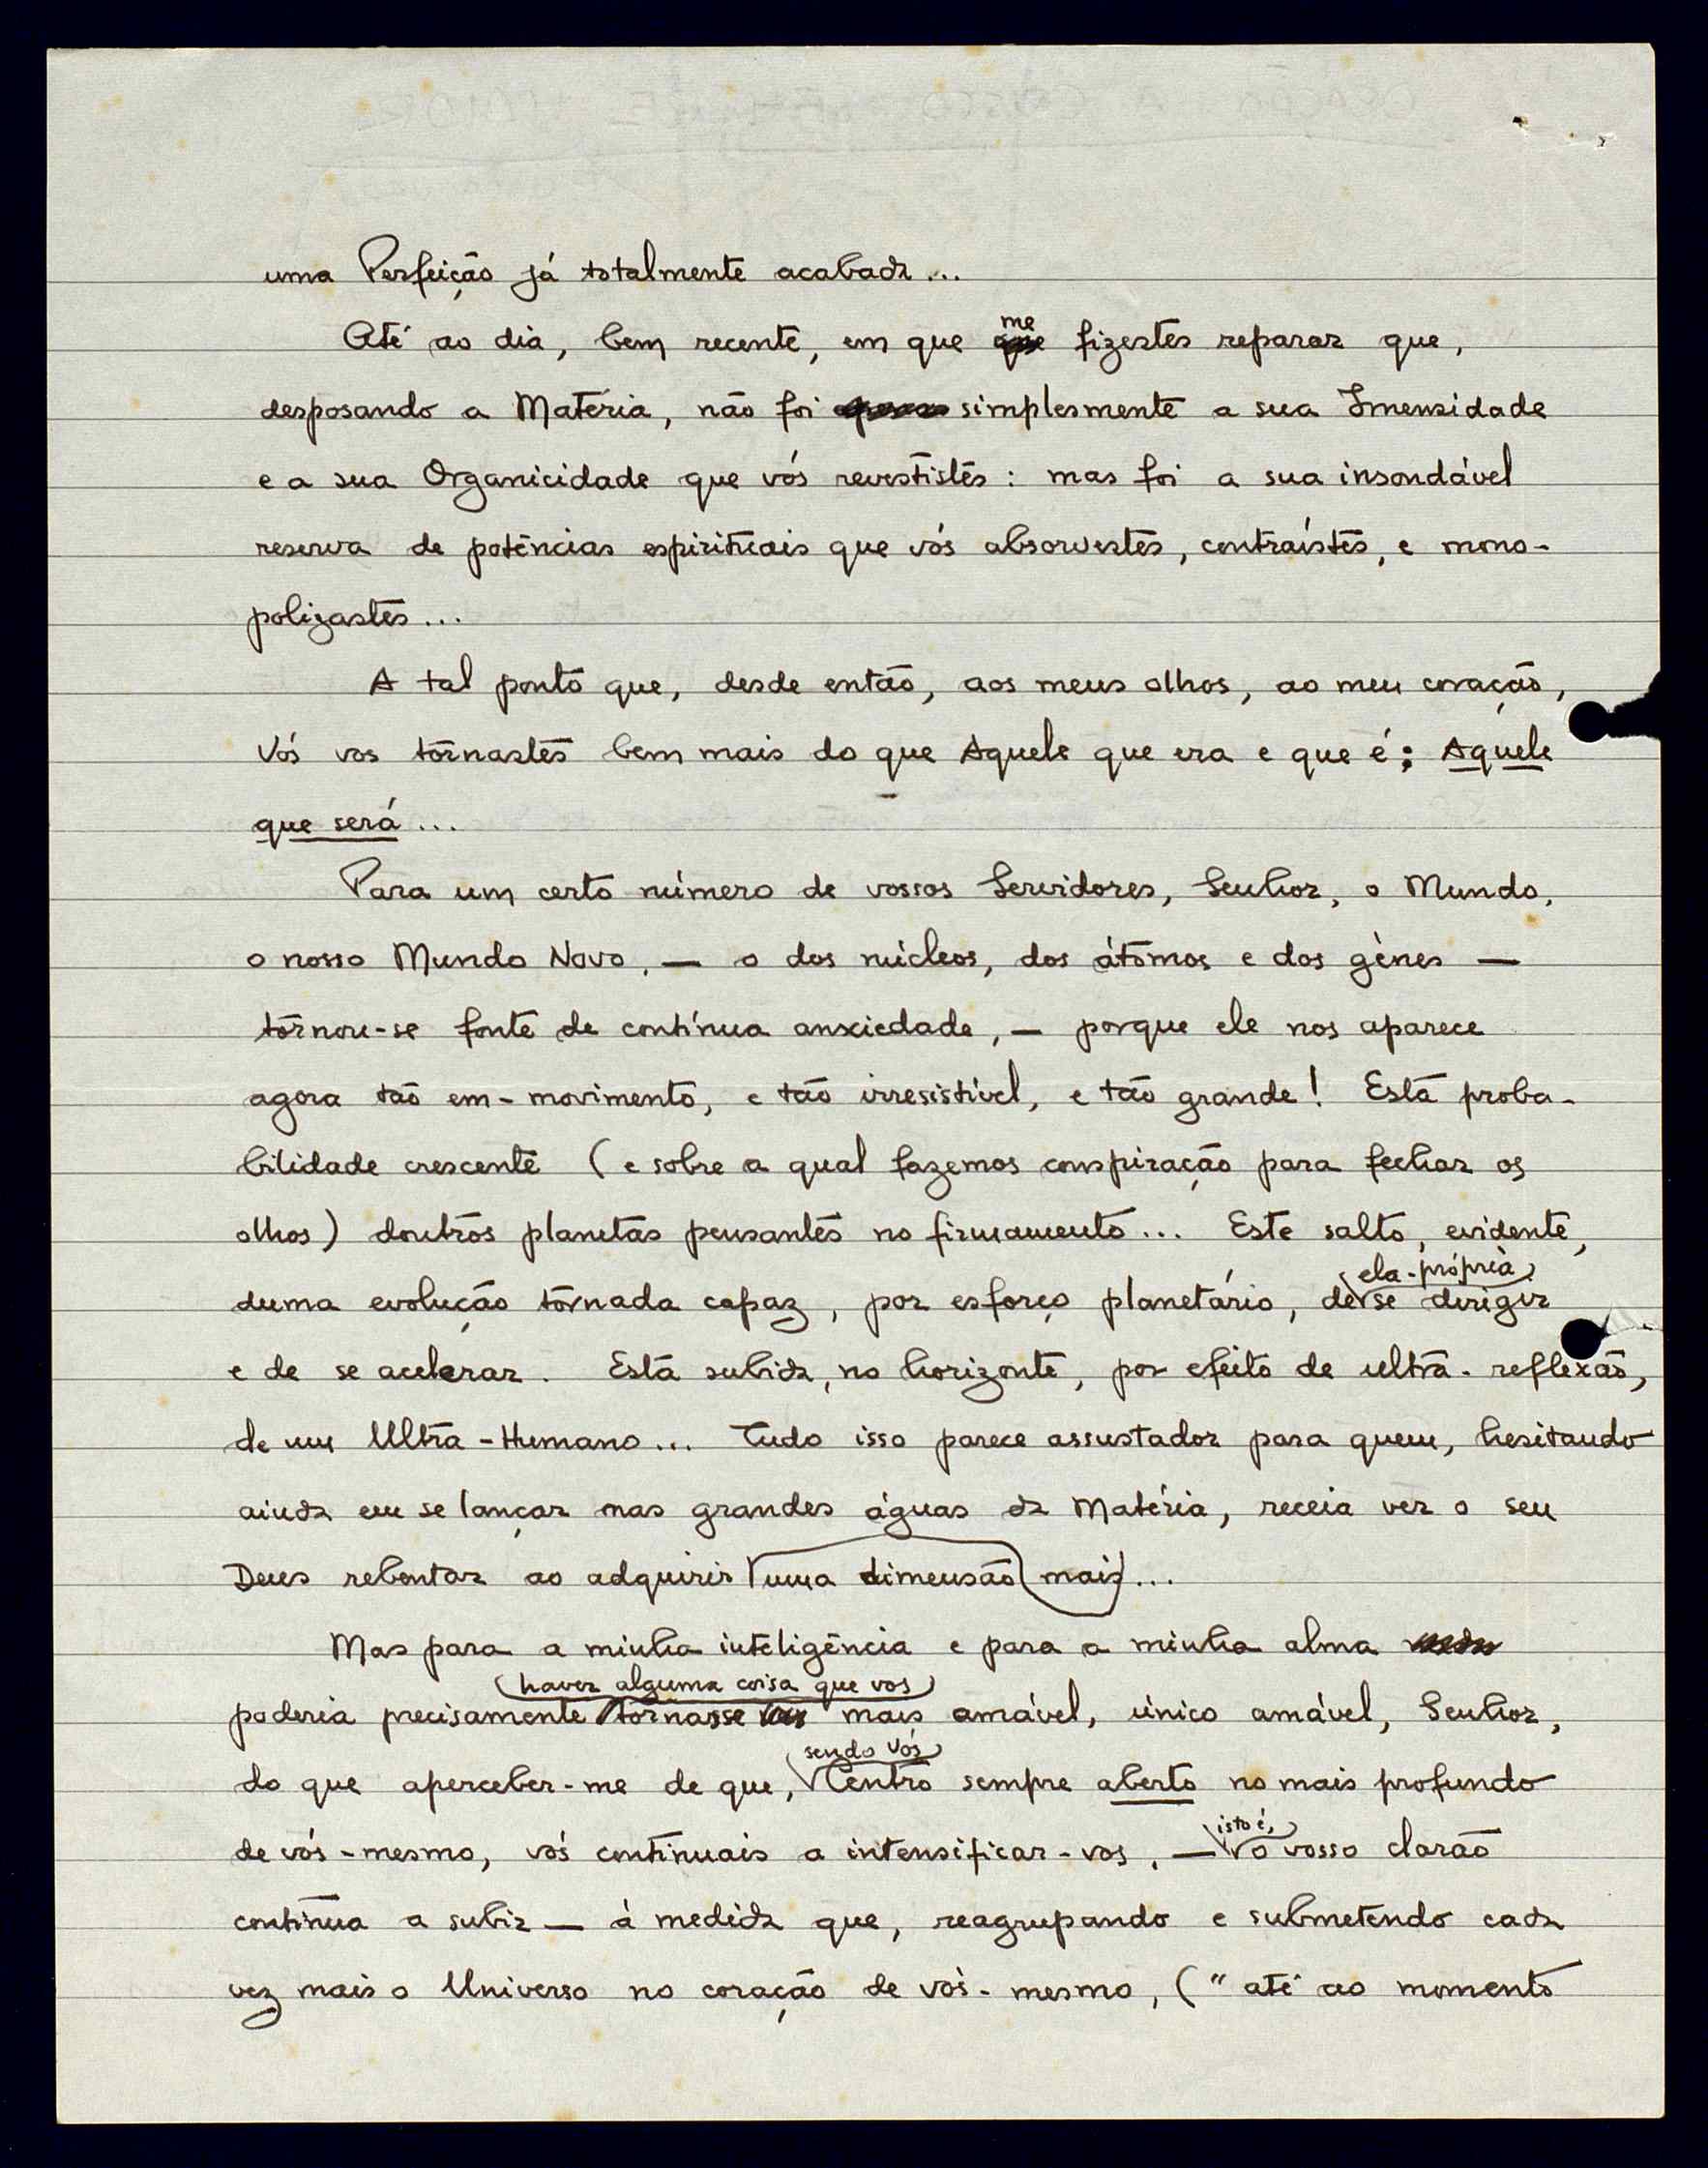 uma Perfeição já totalmente acabada...
Até ao dia, bem recente, em que me fizestes reparar que,
desposando a Matéria, não foi simplesmente a sua Imensidade
e a sua Organicidade que vós revestistes: mas foi a sua insondável
reserva de potências espirituais que vós absorvestes, contraístes, e mono-
polizastes...
A tal ponto que, desde então, aos meus olhos, ao meu coração,
Vós vos tornastes bem mais do que Aquele que era e que é: Aquele
que será...
Para um certo número de vossos Servidores, Senhor, o Mundo,
o nosso Mundo Novo, — o dos núcleos, dos átomos e dos gènes —
tornou-se fonte de contínua anxiedade, — porque ele nos aparece
agora tão em-movimento, e tão irresistível, e tão grande! Esta proba-
bilidade crescente (e sobre a qual fazemos conspiração para fechar os
olhos) doutros planetas pensantes no firmamento... Este salto, evidente,
duma evolução tornada capaz, por esforço planetário, de ela-própria se dirigir
e de se acelerar. Esta subida, no horizonte, por efeito de ultra-reflexão,
de um Ultra-Humano... Tudo isso parece assustador para quem, hesitando
ainda em se lançar nas grandes águas da Matéria, receia ver o seu
Deus rebentar ao adquirir uma dimensão mais...
Mas para a minha inteligência e para a minha alma
poderia precisamente haver alguma coisa que vos tornasse mais amável, único amável, Senhor,
do que aperceber-me de que, sendo Vós Centro sempre aberto no mais profundo
de vós-mesmo, vós continuais a intensificar-vos, — isto é, o vosso clarão
continua a subir — à medida que, reagrupando e submetendo cada
vez mais o Universo no coração de vós-mesmo, ("até ao momento